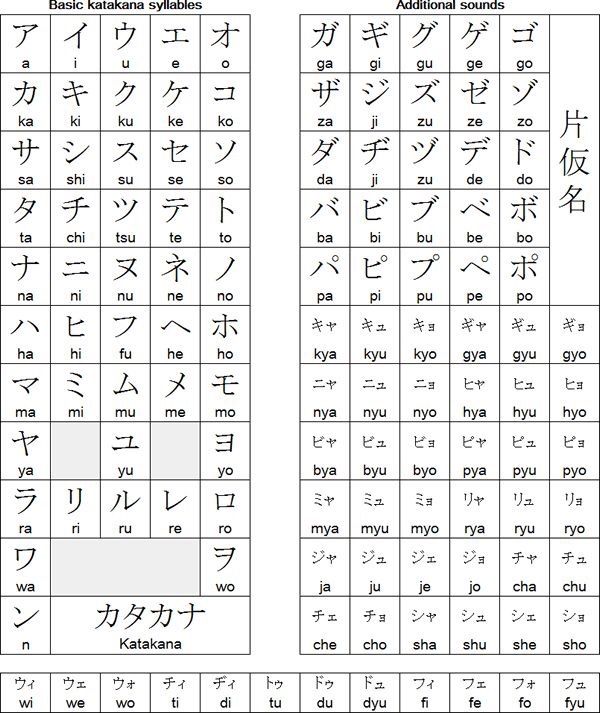 Basic katakana syllables
ア イ ウ エ オ
a i u e o
カ キ ク ケ コ
ka ki ku ke ko
サ シ ス セ ソ
sa shi su se so
タ チ ツ テ ト
ta chi tsu te to
ナ ニ ヌ ネ ノ
na ni nu ne no
ハ ヒ フ ヘ ホ
ha hi fu he ho
マ ミ ム メ モ
ma mi mu me mo
ヤ ユ ヨ
ya yu yo
ラ リ ル レ ロ
ra ri ru re ro
ワ ヲ
wa wo
ン カタカナ
n Katakana
Additional sounds
ガ ギ グ ゲ ゴ
ga gi gu ge go
ザ ジ ズ ゼ ゾ
za ji zu ze zo
ダ ヂ ヅ デ ド
da ji zu de do
バ ビ ブ ベ ボ
ba bi bu be bo
パ ピ プ ペ ポ
pa pi pu pe po
片仮名
キャ キュ キョ ギャ ギュ ギョ
kya kyu kyo gya gyu gyo
ニャ ニュ ニョ ヒャ ヒュ ヒョ
nya nyu nyo hya hyu hyo
ビャ ビュ ビョ ピャ ピュ ピョ
bya byu byo pya pyu pyo
ミャ ミュ ミョ リャ リュ リョ
mya myu myo rya ryu ryo
ジャ ジュ ジェ ジョ チャ チュ
ja ju je jo cha chu
チェ チョ シャ シュ シェ ショ
che cho sha shu she sho
ウィ ウェ ウォ ティ ディ トゥ ドゥ デュ フィ フェ フォ フュ
wi we wo ti di tu du dyu fi fe fo fyu